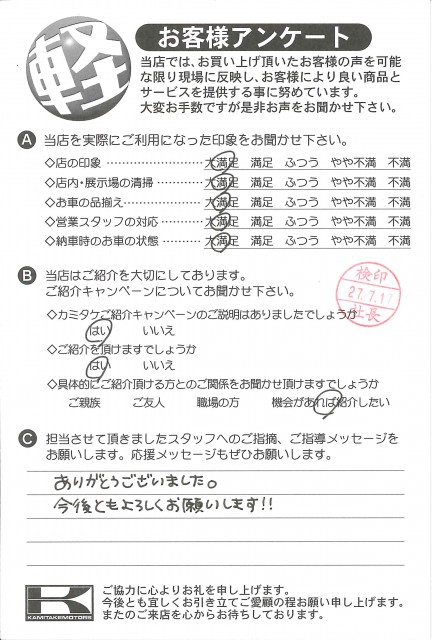 軽
お客様アンケート
当店では、お買い上げ頂いたお客様の声を可能
な限り現場に反映し、お客様により良い商品と
サービスを提供する事に努めています。
大変お手数ですが是非お声をお聞かせ下さい。
A 当店を実際にご利用になった印象をお聞かせ下さい。
◇店の印象 …………………… 大満足 満足 ふつう やや不満 不満
◇店内・展示場の清掃………… 大満足 満足 ふつう やや不満 不満
◇お車の品揃え………………… 大満足 満足 ふつう やや不満 不満
◇営業スタッフの対応 ………… 大満足 満足 ふつう やや不満 不満
◇納車時のお車の状態 ………… 大満足 満足 ふつう やや不満 不満
B 当店はご紹介を大切にしてあります。
ご紹介キャンペーンについてお聞かせ下さい。
検印
27.7.17
社長
◇カミタケご紹介キャンペーンのご説明はありましたでしょうか
はい いいえ
◇ご紹介を頂けますでしょうか
はい いいえ
◇具体的にご紹介頂ける方とのご関係をお聞かせ頂けますでしょうか
ご親族 ご友人 職場の方 機会があれば紹介したい
C 担当させて頂きましたスタッフへのご指摘、ご指導メッセージを
お願いします。応援メッセージもぜひお願いします。
ありがとうございました。
今後ともよろしくお願いします!!
K
KAMITAKEMOTORS
ご協力に心よりお礼を申し上げます。
今後とも宜しくお引き立てご愛顧の程お願い申し上げます。
またのご来店を心からお待ちしております。